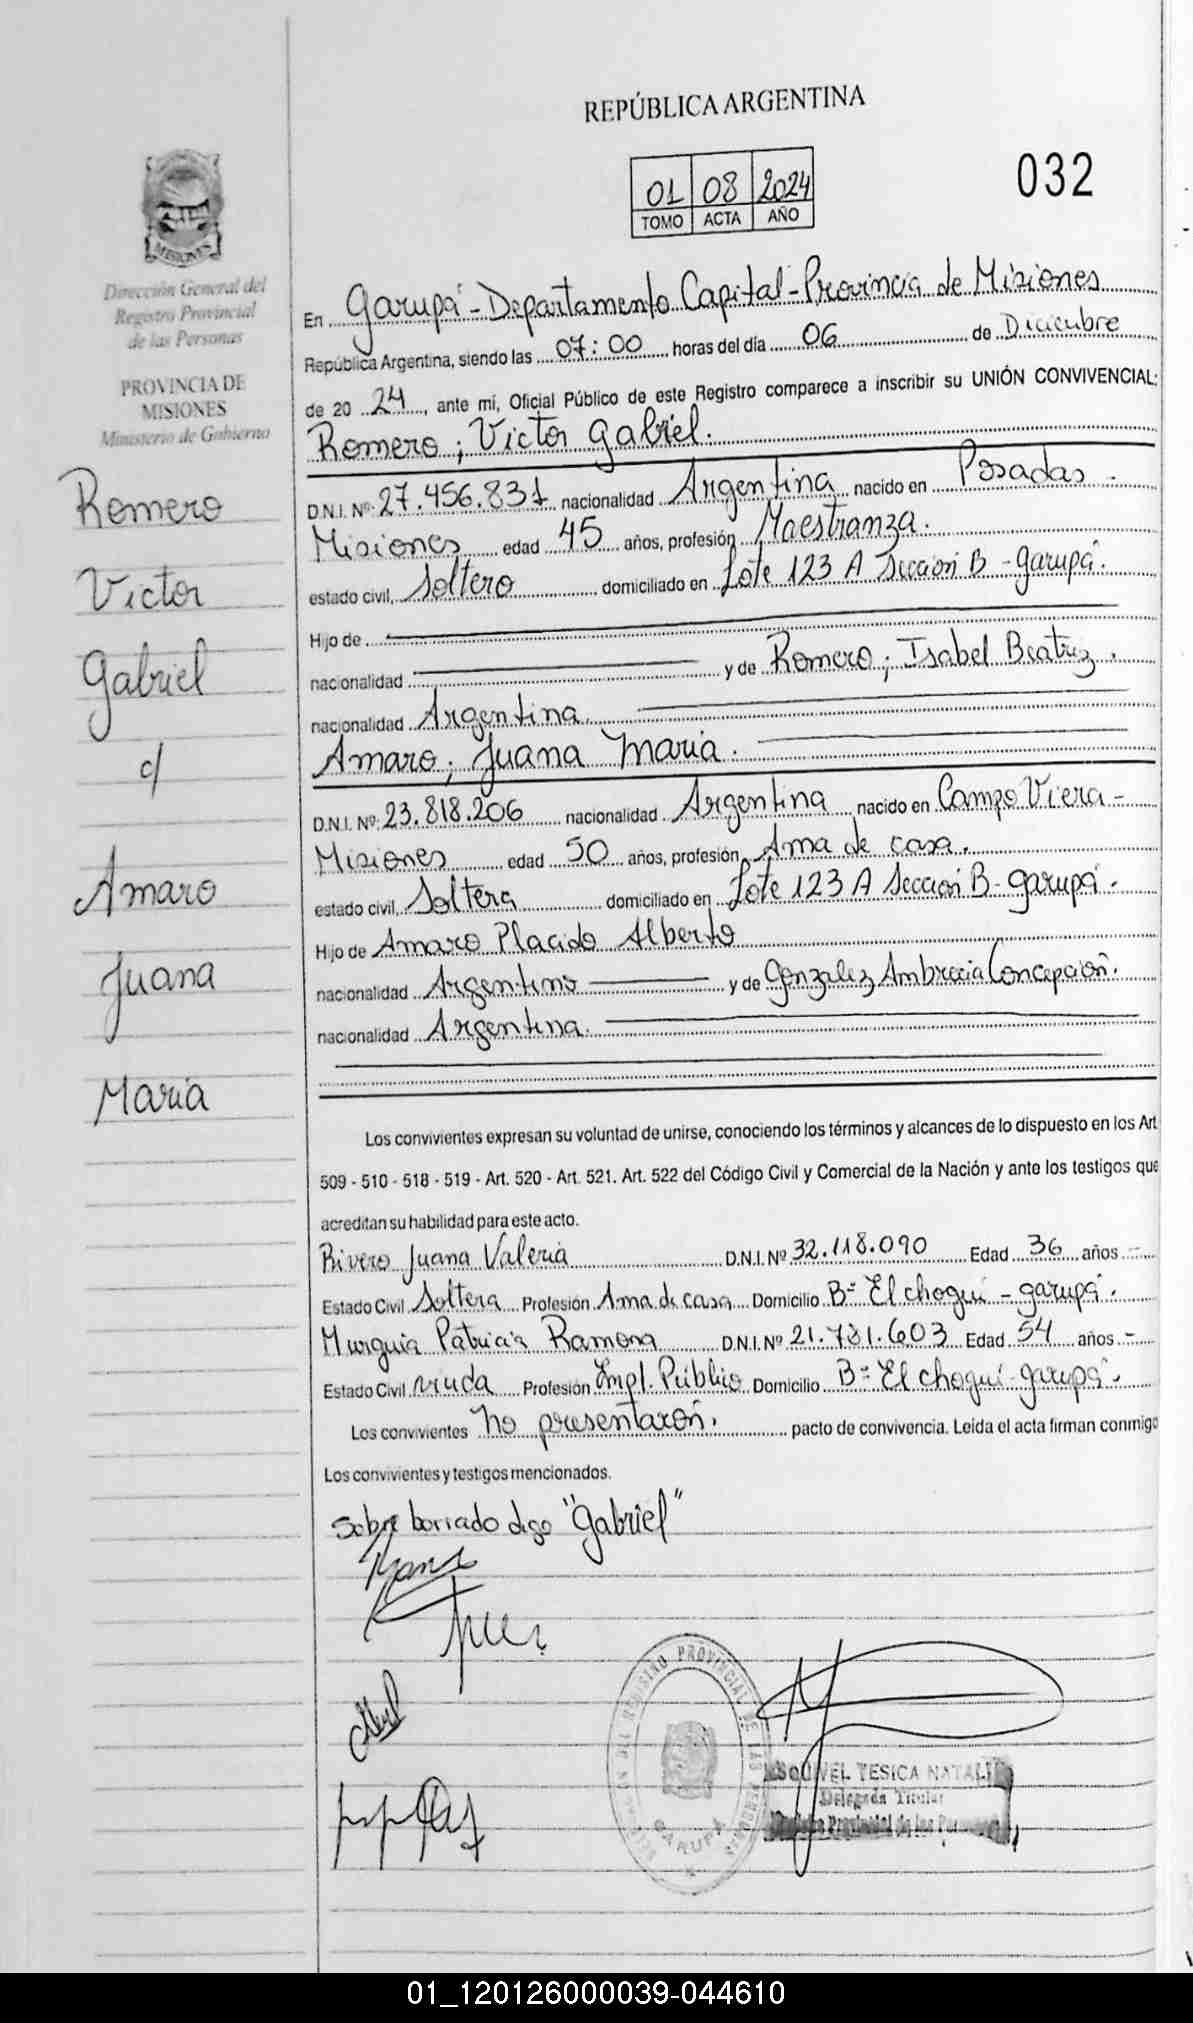 REPÚBLICA ARGENTINA
01 08 2024
TOMO ACTA AÑO
032
MISIONES
Dirección General del
Registro Provincial
de las Personas
PROVINCIA DE
MISIONES
Ministerio de Gobierno
Romero
Victor
Gabriel
c/
Amaro
Juana
Maria
En Garupá - Departamento Capital - Provincia de Misiones
República Argentina, siendo las 07:00 horas del día 06 de Diciembre
de 20 24, ante mí, Oficial Público de este Registro comparece a inscribir su UNIÓN CONVIVENCIAL:
Romero; Victor Gabriel.
D.N.I. Nº 27.456.831 nacionalidad Argentina nacido en Posadas -
Misiones edad 45 años, profesión Maestranza.
estado civil, Soltero domiciliado en Lote 123 A Sección B - Garupá.
Hijo de
nacionalidad y de Romero; Isabel Beatriz.
nacionalidad Argentina
Amaro; Juana Maria.
D.N.I. Nº 23.818.206 nacionalidad Argentina nacido en Campo Viera -
Misiones edad 50 años, profesión Ama de casa.
estado civil, Soltera domiciliado en Lote 123 A Sección B - Garupá.
Hijo de Amaro Placido Alberto
nacionalidad Argentino y de Gonzalez Ambrecia Concepción.
nacionalidad Argentina.
Los convivientes expresan su voluntad de unirse, conociendo los términos y alcances de lo dispuesto en los Art
509 - 510 - 518 - 519 - Art. 520 - Art. 521. Art. 522 del Código Civil y Comercial de la Nación y ante los testigos que
acreditan su habilidad para este acto.
Rivero Juana Valeria D.N.I. Nº 32.118.090 Edad 36 años -
Estado Civil Soltera Profesión Ama de casa Domicilio Bº El chogui - Garupá.
Murguia Patricia Ramona D.N.I. Nº 21.781.603 Edad 54 años -
Estado Civil Viuda Profesión Empl. Público Domicilio Bº El chogui - Garupá.
Los convivientes No presentaron. pacto de convivencia. Leída el acta firman conmigo
Los convivientes y testigos mencionados.
Sobre borrado digo "Gabriel"
REGISTRO PROVINCIAL DE LAS PERSONAS
GARUPÁ
YESICA NATALI
Delegada Titular
Provincial de las
01_120126000039-044610